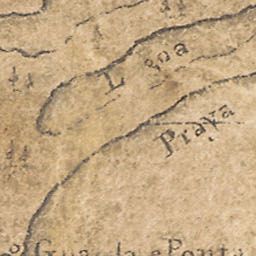 Lgoa
Praya
Guarda e Ponta